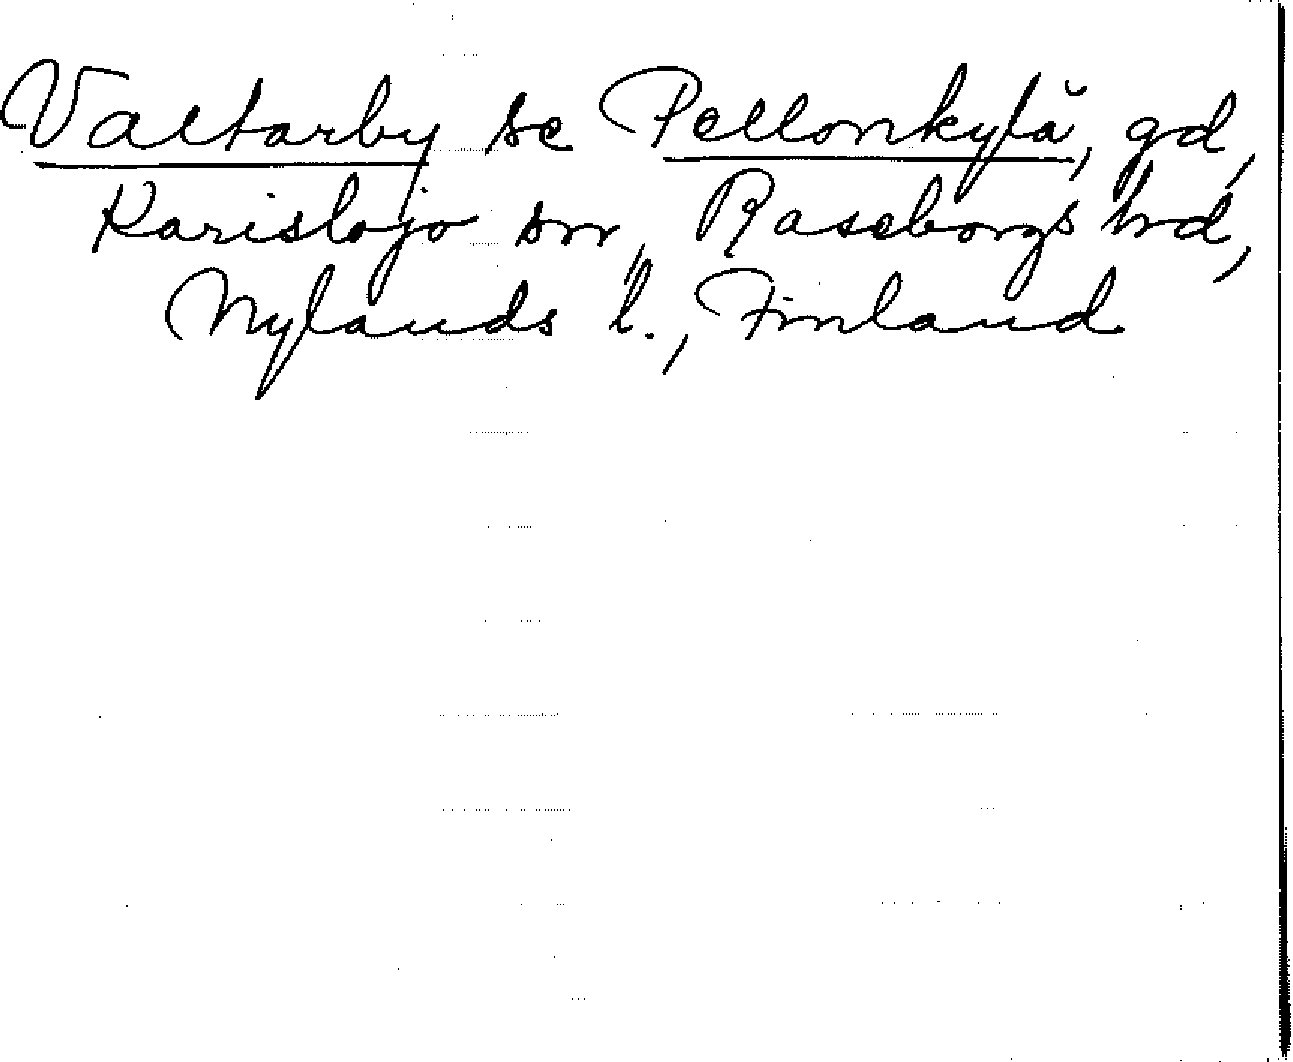 Valtarby se Pellonkylä, gd,
Karislojo sn, Raseborgs hd,
Nylands l., Finland